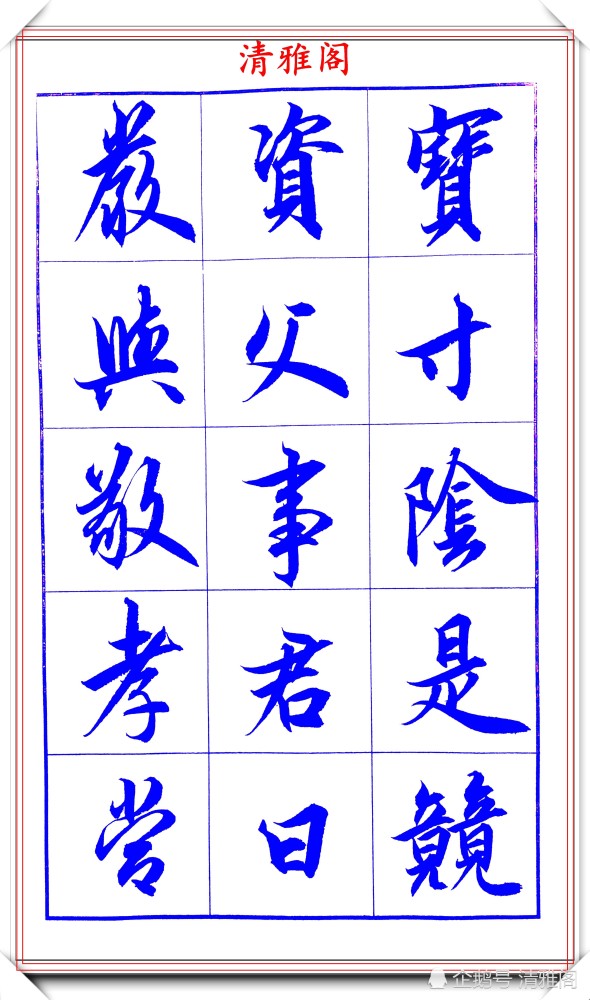 清雅阁
寶寸陰是競
資父事君曰
嚴與敬孝當
企鹅号 清雅阁